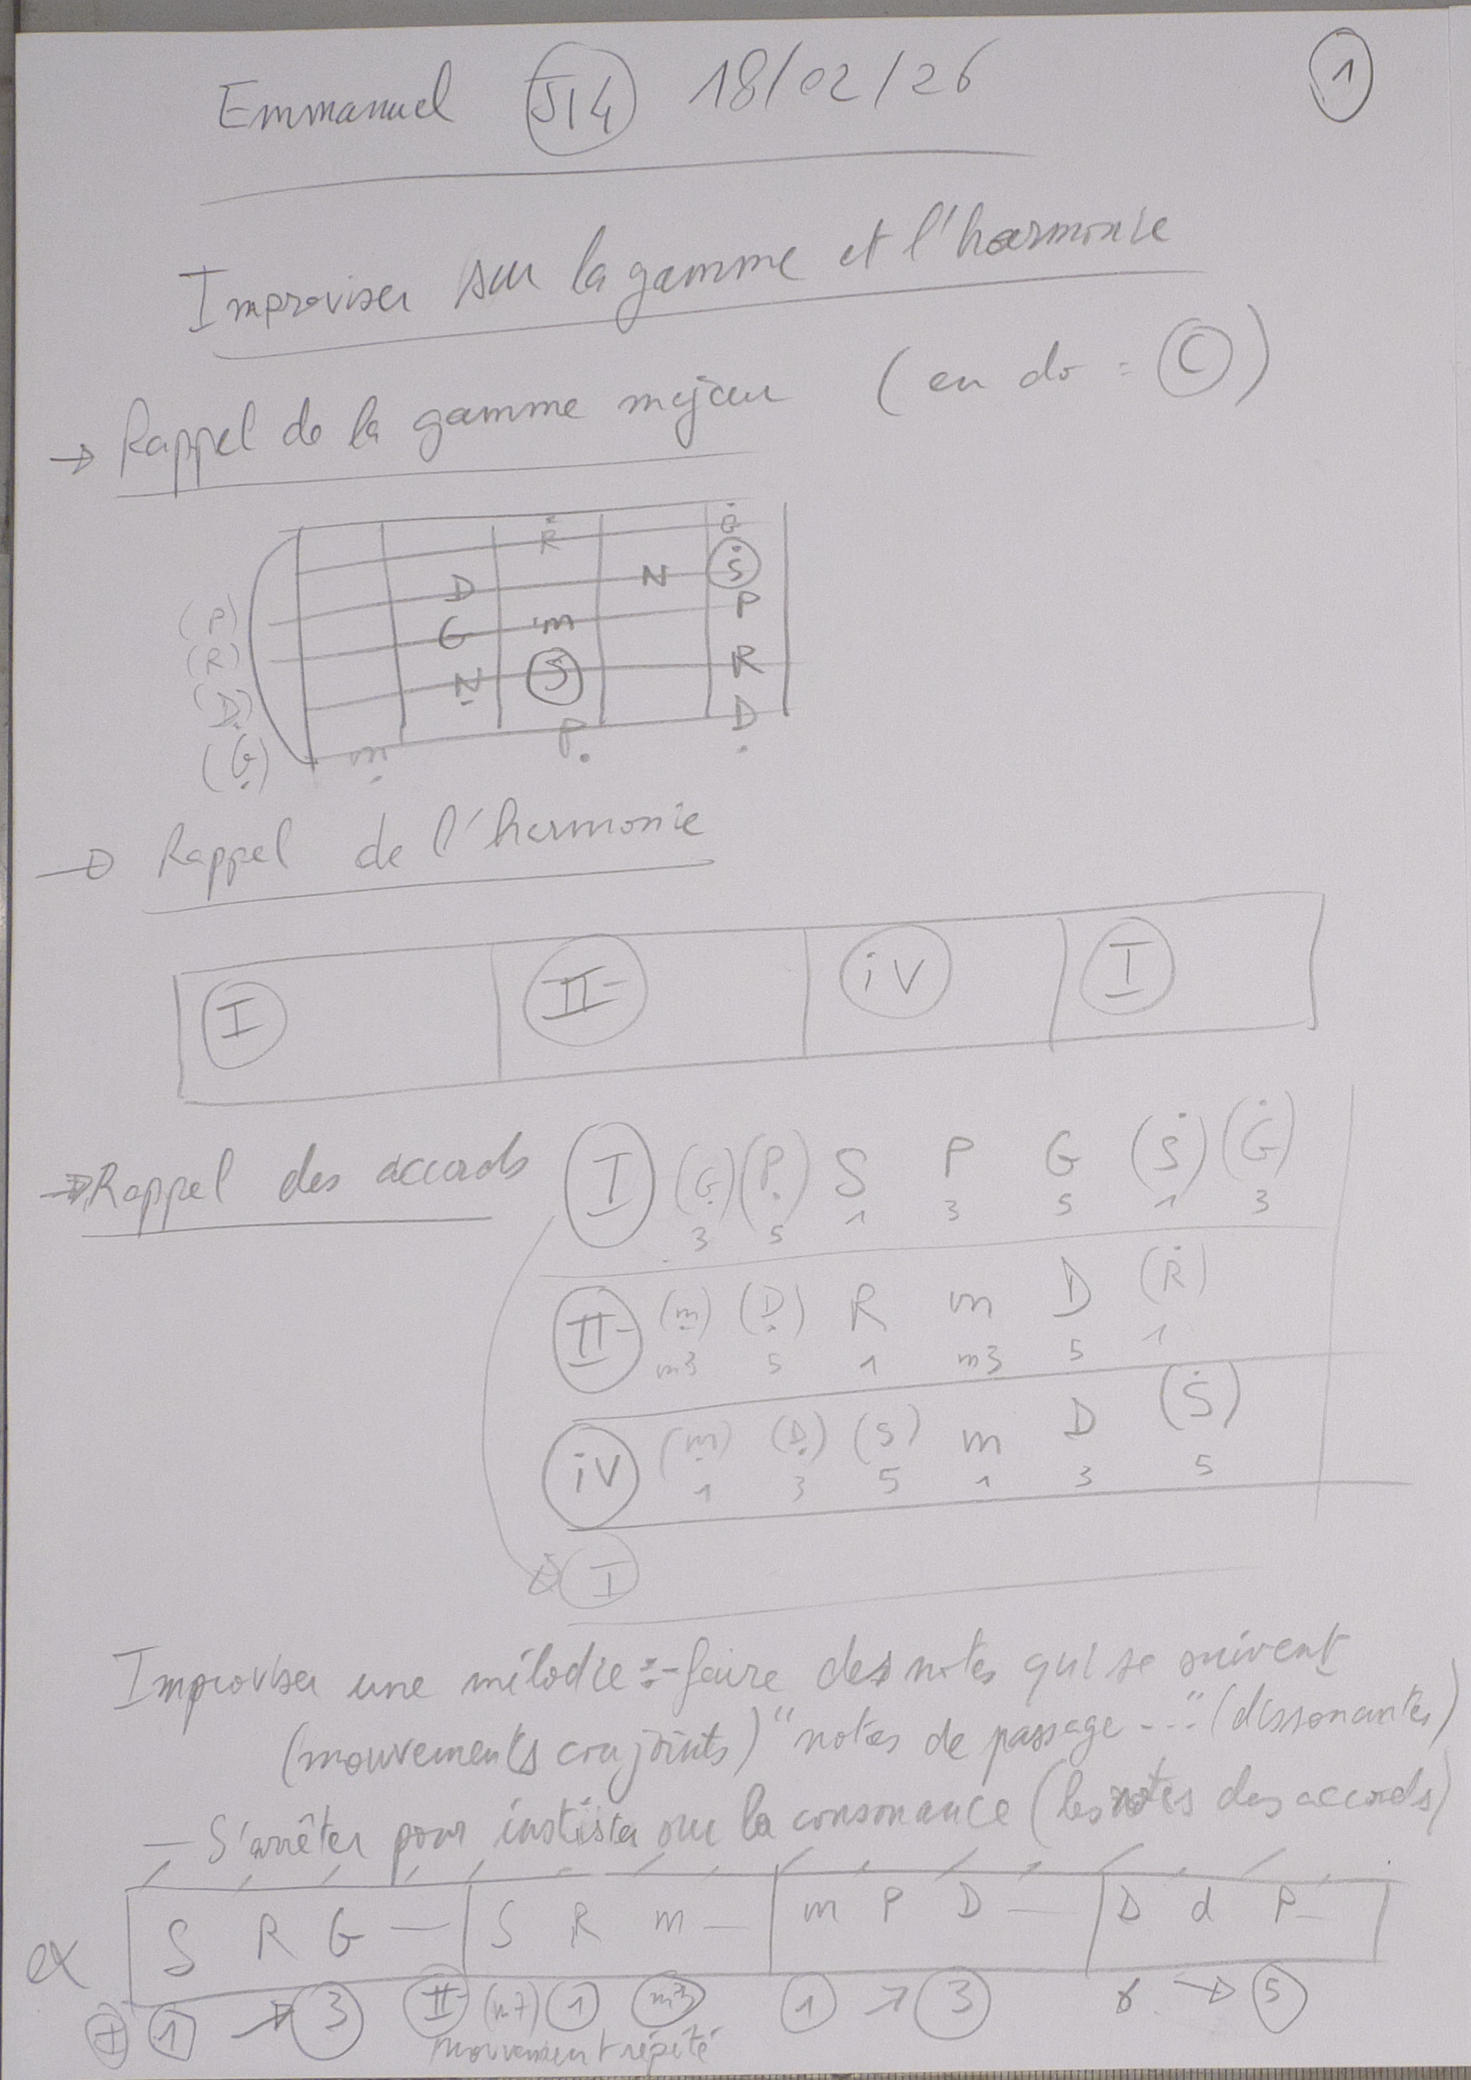 Emmanuel J14 18/02/26 1
Improviser sur la gamme et l'harmonie
→ Rappel de la gamme majeur (en do = C)
Ṙ Ġ
D N Ṡ
(P) G m P
(R) Ṇ S R
(Ḍ) ṃ P̣ Ḍ
(G̣)
→ Rappel de l'harmonie
I II- iV I
→ Rappel des accords I (G̣) (P̣) S P G (Ṡ) (Ġ)
3 5 1 3 5 1 3
II- (ṃ) (Ḍ) R m D (Ṙ)
m3 5 1 m3 5 1
iV (ṃ) (Ḍ) (S) m D (Ṡ)
1 3 5 1 3 5
I
Improviser une mélodie :- faire des notes qui se suivent
(mouvements conjoints) "notes de passage..." (dissonantes)
— S'arrêter pour instister sur la consonance (les notes des accords)
ex S R G — S R m — m P D — D d P —
I 1 → 3 II- (m7) 1 m3 1 → 3 → 5
mouvement répété